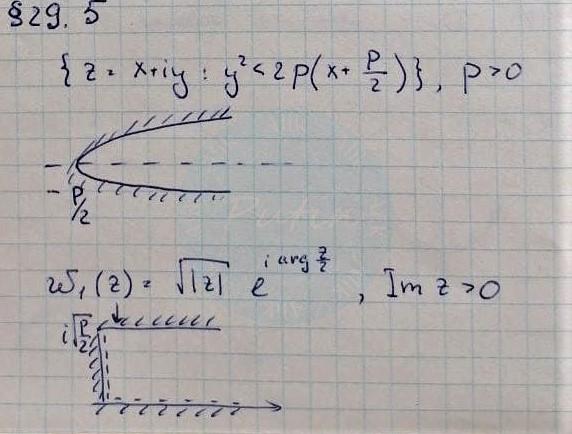 §29. 5
{ z = x+iy : y² < 2p(x + p/2) }, p>0
- p/2
w₁(z) = √|z| e^(i arg z/2), Im z > 0
i√(p/2)